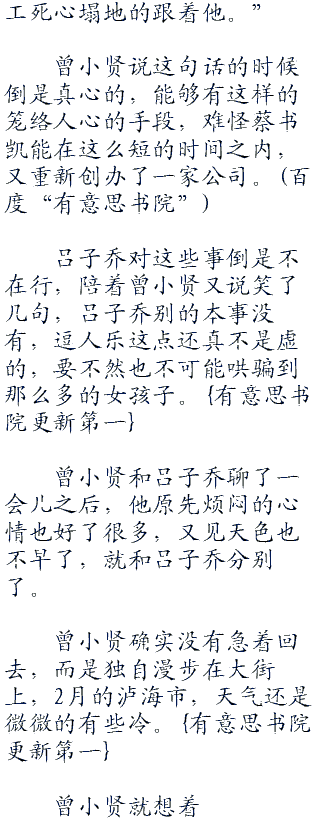 工死心塌地的跟着他。”
曾小贤说这句话的时候
倒是真心的，能够有这样的
笼络人心的手段，难怪蔡书
凯能在这么短的时间之内，
又重新创办了一家公司。(百
度“有意思书院”)
吕子乔对这些事倒是不
在行，陪着曾小贤又说笑了
几句，吕子乔别的本事没
有，逗人乐这点还真不是虚
的，要不然也不可能哄骗到
那么多的女孩子。{有意思书
院更新第一}
曾小贤和吕子乔聊了一
会儿之后，他原先烦闷的心
情也好了很多，又见天色也
不早了，就和吕子乔分别
了。
曾小贤确实没有急着回
去，而是独自漫步在大街
上，2月的泸海市，天气还是
微微的有些冷。{有意思书院
更新第一}
曾小贤就想着